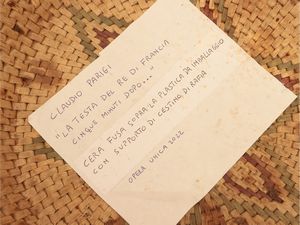 CLAUDIO PARIGI
"LA TESTA DEL RE DI FRANCIA
CINQUE MINUTI DOPO..."
CERA FUSA SOPRA LA PLASTICA DA IMBALLAGGIO
CON SUPPORTO DI CESTINO DI RAFIA
OPERA UNICA 2022